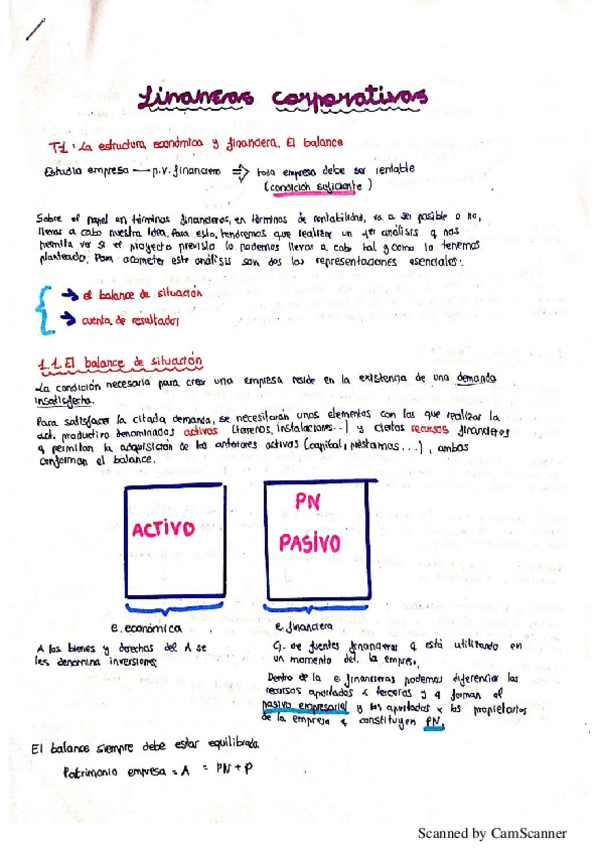 Finanzas corporativas
T-1: La estructura económica y financiera. El balance
Estudio empresa — p.v. financiero => toda empresa debe ser rentable
(condición suficiente)
Sobre el papel en términos financieros, en términos de rentabilidad, va a ser posible o no,
llevar a cabo nuestra idea, Para esto, tendremos que realizar un 1er análisis q nos
permita ver si el proyecto previsto lo podemos llevar a cabo tal y como lo tenemos
planteado. Para acometer este análisis son dos las representaciones esenciales:
→ el balance de situación
→ cuenta de resultados
1.1. El balance de situación
La condición necesaria para crear una empresa reside en la existencia de una demanda
insatisfecha.
Para satisfacer la citada demanda, se necesitarán unos elementos con los que realizar la
act. productiva denominados activos (terrenos, instalaciones...) y ciertos recursos financieros
q permitan la adquisición de los anteriores activos (capital, préstamos...), ambas
conforman el balance.
ACTIVO
PN
PASIVO
e. económica
e. financiera
A los bienes y derechos del A se
les denomina inversiones
Cj. de fuentes financieras q está utilizando en
un momento det. la empresa.
Dentro de la e financieras podemos diferenciar los
recursos aportados x terceros y q forman el
pasivo empresarial y los aportados x los propietarios
de la empresa q constituyen PN.
El balance siempre debe estar equilibrado
Patrimonio empresa = A = PN + P
Scanned by CamScanner